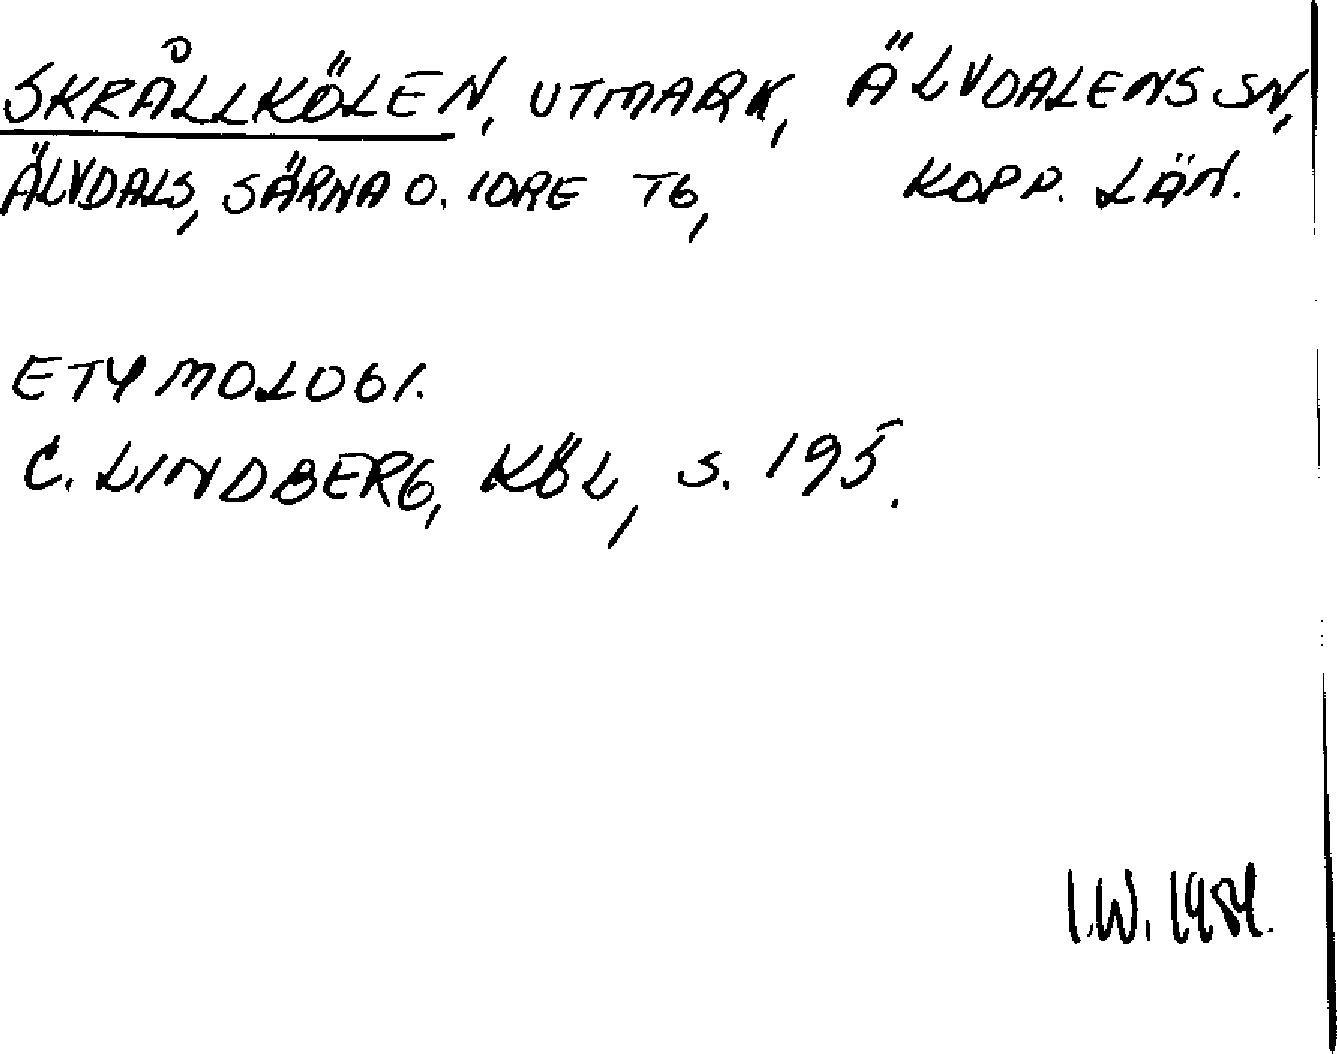 SKRÅLLKÖLEN, UTMARK, ÄLVDALENS SN,
ÄLVDALS, SÄRNA O. IDRE TG, KOPP. LÄN.
ETYMOLOGI.
C. LINDBERG, KÖL, S. 195.
I.W. 1984.